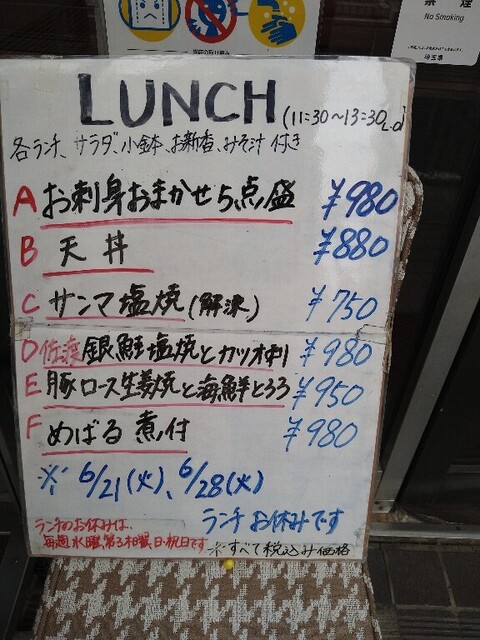 LUNCH (11:30～13:30L.O)
各ランチ、サラダ、小鉢、お新香、みそ汁 付き
A お刺身おまかせ5点盛 ¥980
B 天丼 ¥880
C サンマ塩焼(解凍) ¥750
D 佐渡銀鮭塩焼とカツオ刺 ¥980
E 豚ロース生姜焼と海鮮とろろ ¥950
F めばる煮付 ¥980
※ 6/21(火)、6/28(火)
ランチ お休みです
ランチのお休みは、
毎週水曜、第3木曜、日・祝日です
※すべて税込み価格
禁煙
No Smoking
埼玉県